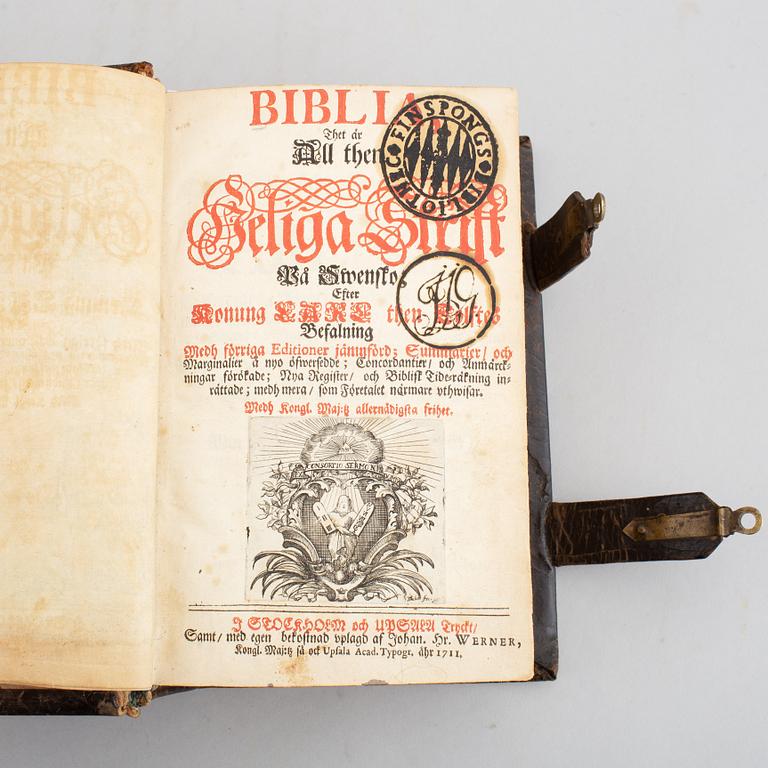 BIBLIA,
Thet är
All then
Heliga Skrift
På Swensko;
Efter
Konung CARL then Tolftes
Befalning
Medh förriga Editioner jämnförd; Summarier/ och
Marginalier å nyo öfwersedde; Concordantier/ och Anmärck-
ningar förökade; Nya Register/ och Biblisk Tide-räkning in-
rättade; medh mera/ som Företalet närmare uthwisar.
Medh Kongl. Maj:tz allernådigsta frihet.
FINSPONGS BIBLIOTHEC
CONSORTIO SERMON
J STOCKHOLM och UPSALA Tryckt/
Samt/ med egen bekostnad uplagd af Johan. Hr. WERNER,
Kongl. Maj:tz så ock Upsala Acad. Typogr. åhr 1711.